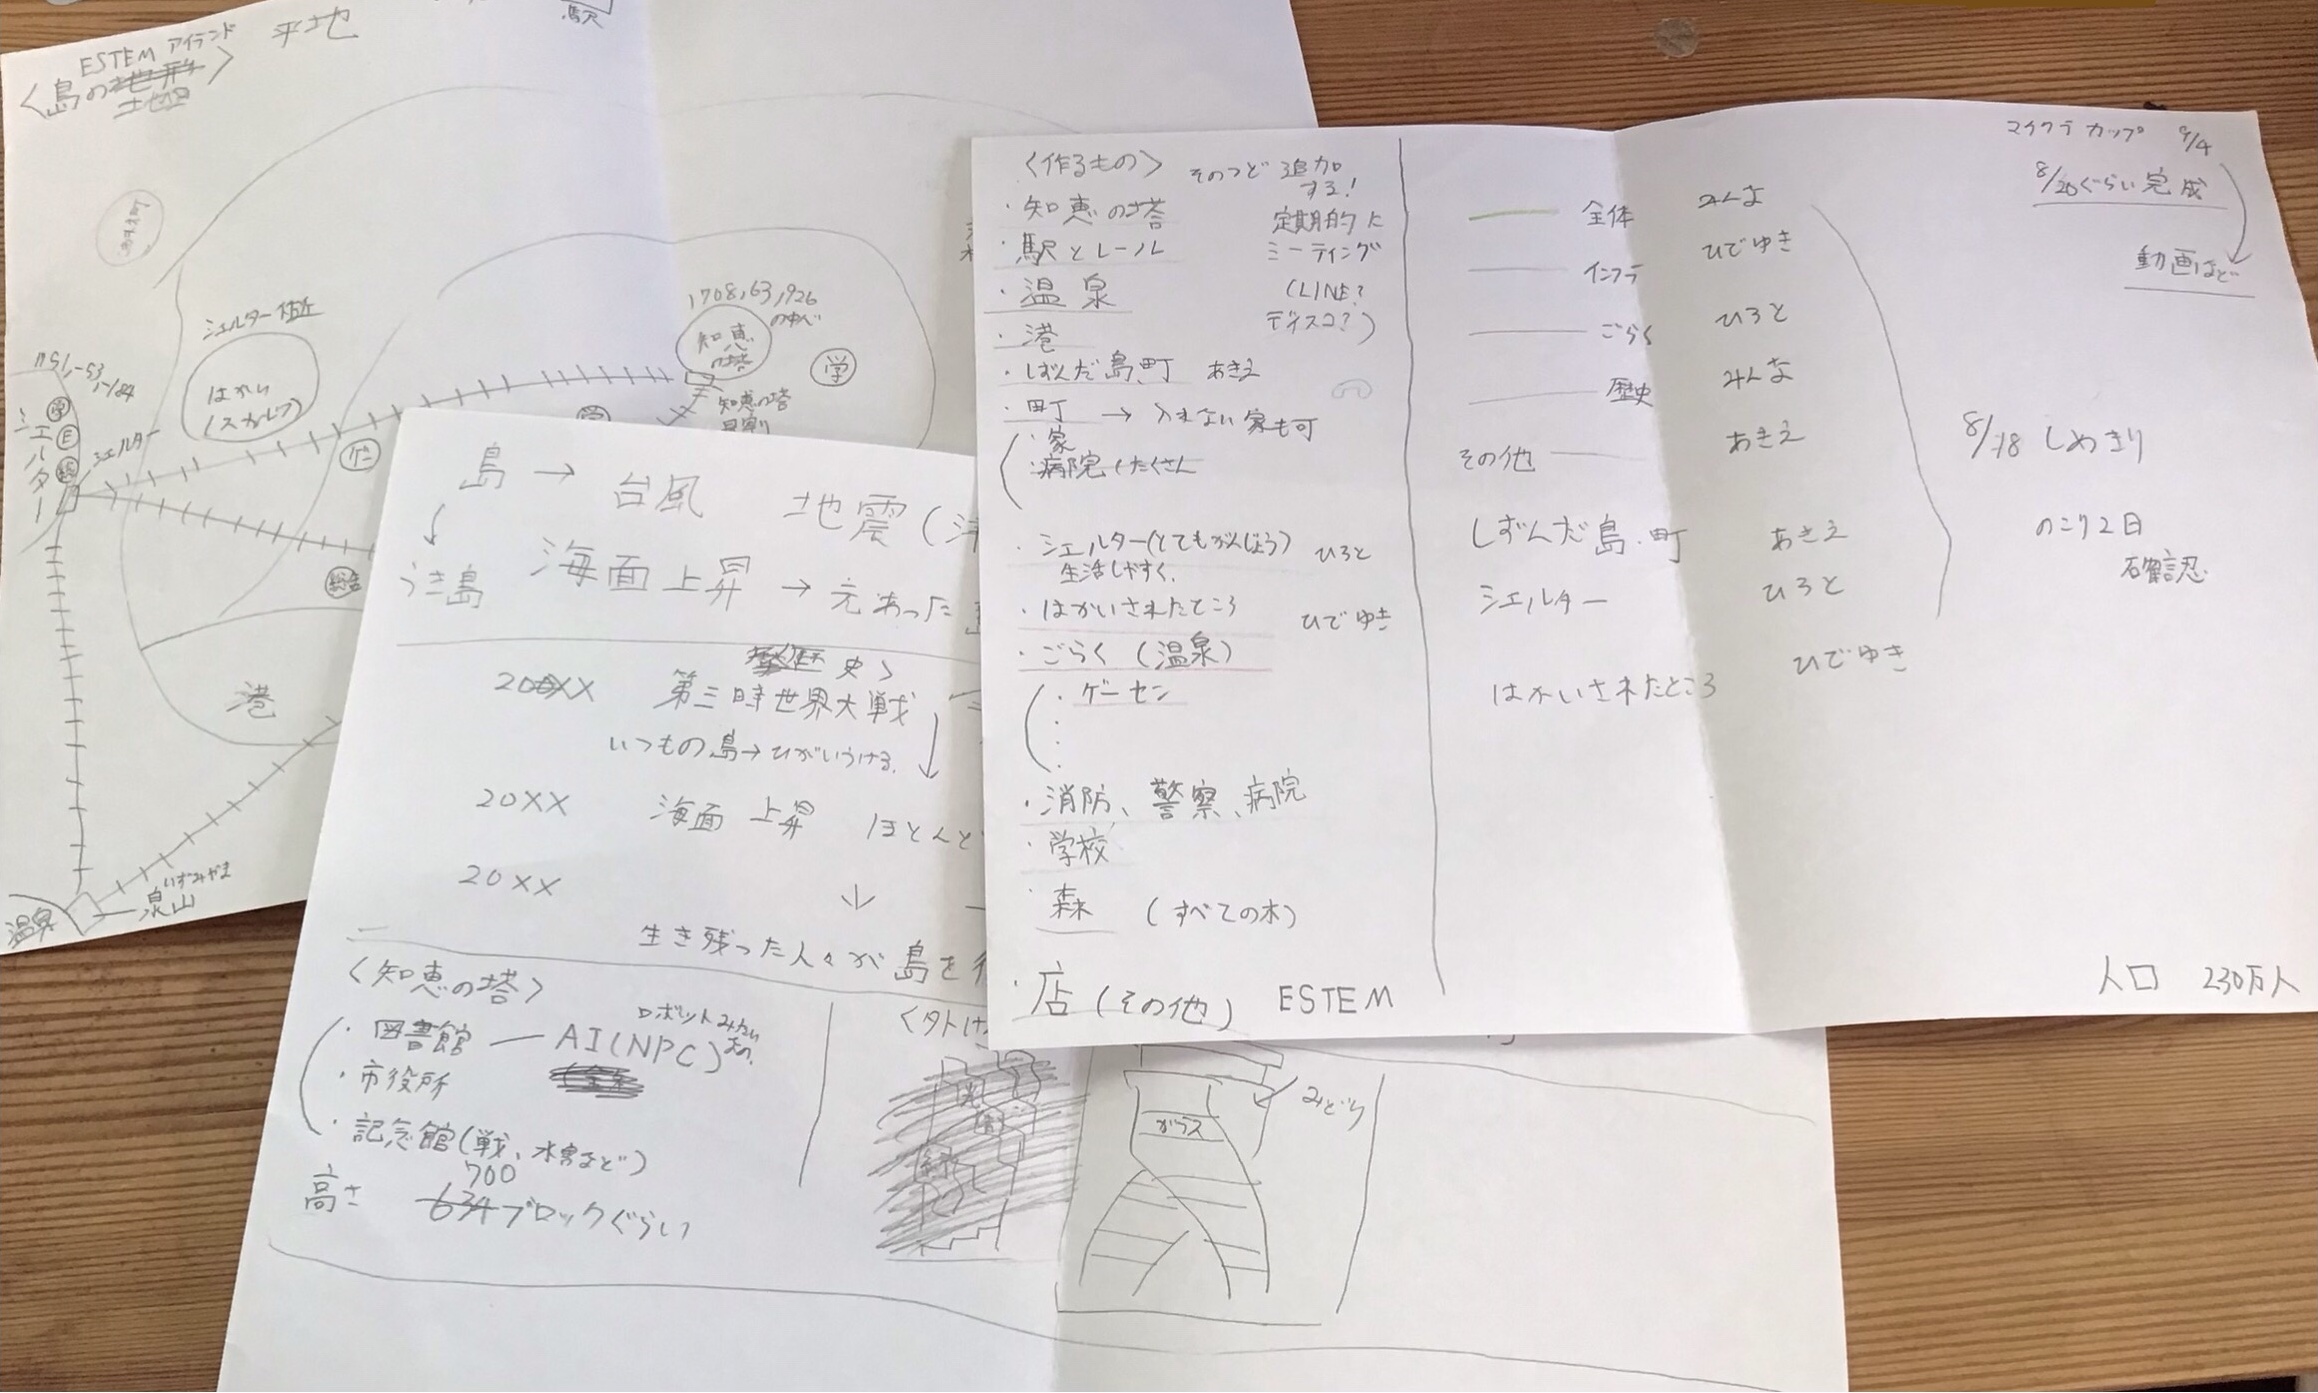 〈島の土地〉
ESTEM アイランド
平地
駅
シェルター付近
はかい
(スカルフ)
1151,-53,-184
シェルター
シェルター
学
E
総
ゲ
総合
1708,63,926
のゆい
知恵
の塔
学
知恵の塔
港
温泉
泉山
いずみやま
島 → 台風 地震(津
↓
うき島 海面上昇 → 元あった島
歴史〉
20XX 第三時世界大戦
いつもの島→ひがいうける。
20XX 海面上昇 ほとんど
20XX
生き残った人々が島を
〈知恵の塔〉
・図書館 — AI(NPC)
ロボットみたいな。
・市役所
・記念館(戦、水害など)
高さ 634 700 ブロックぐらい
〈外け
ガラス
みどり
〈作るもの〉 そのつど追加
する!
・知恵の塔
・駅とレール
・温泉
・港
定期的に
ミーティング
(LINE?
ディスコ?)
・しずんだ島、町 あきえ
・町 → 入れない家も可
・家
・病院 (たくさん
・シェルター(とてもがんじょう) ひろと
生活しやすく。
・はかいされたところ ひでゆき
・ごらく (温泉)
・ゲーセン
・消防、警察、病院
・学校
・森 (すべての木)
・店 (その他) ESTEM
全体 みんな
インフラ ひでゆき
ごらく ひろと
歴史 みんな
その他 あきえ
しずんだ島・町 あきえ
シェルター ひろと
はかいされたところ ひでゆき
マイクラカップ 9/4
8/20ぐらい完成
動画など
8/18 しめきり
のこり2日
確認
人口 230万人